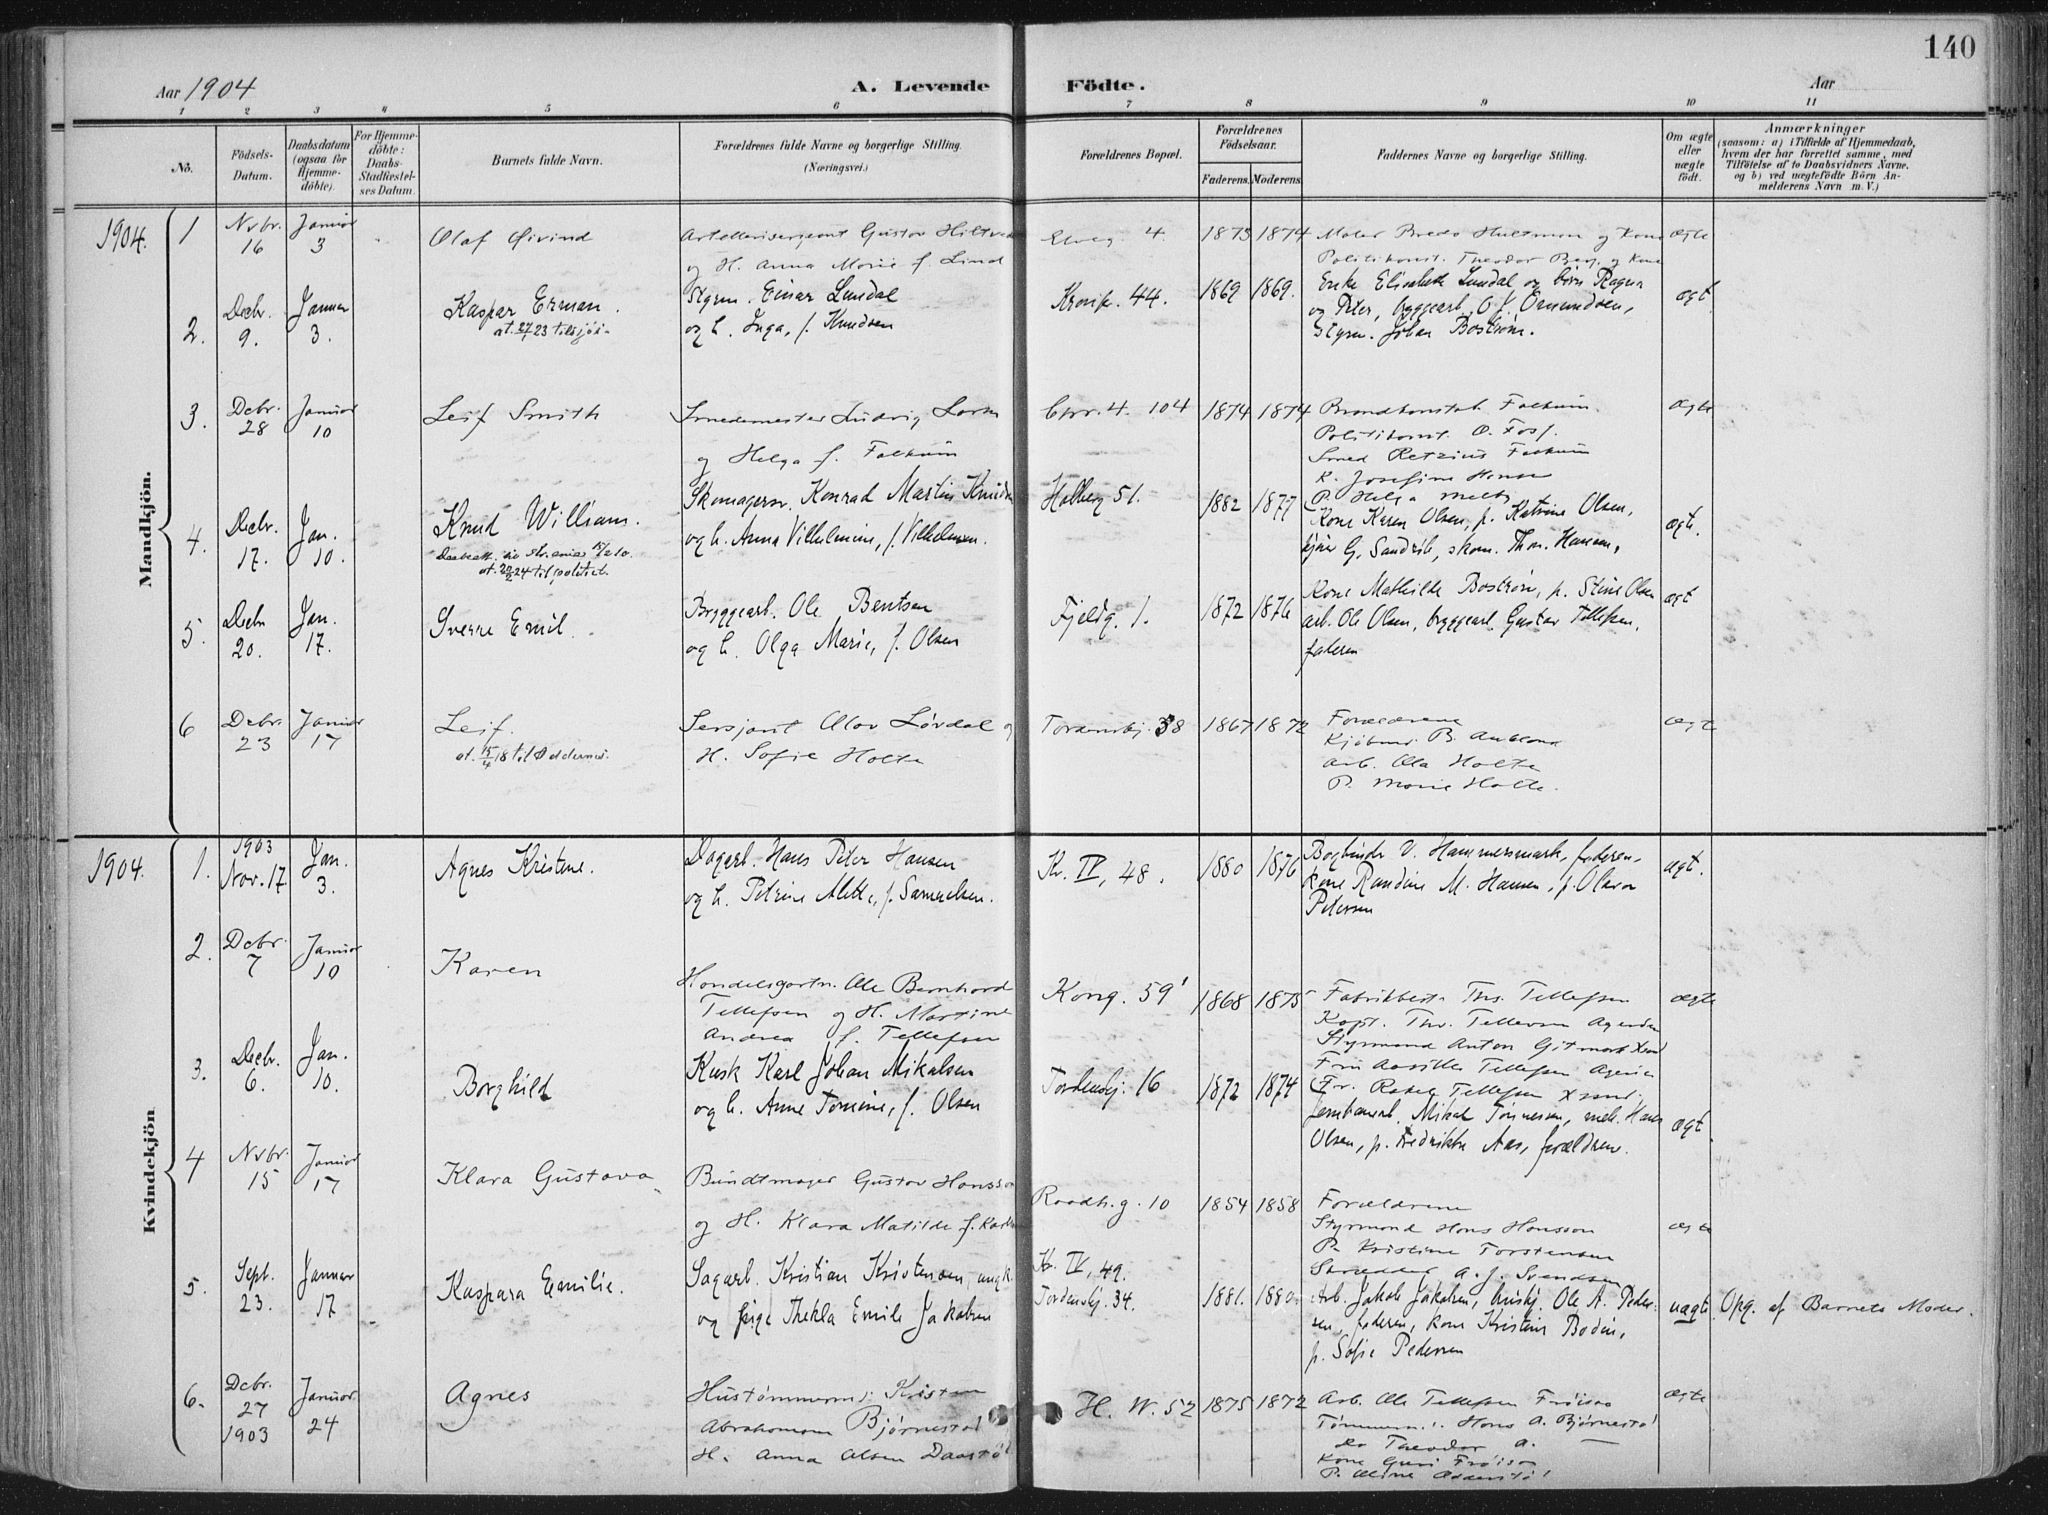 140
Aar 1904
A. Levende
Födte.
Aar
1 2 3 4 5 6 7 8 9 10 11
No.
Födsels-Datum.
Daabsdatum (ogsaa for Hjemme-döbte).
For Hjemme-döbte: Daabs-Stadfæstel-ses Datum.
Barnets fulde Navn.
Forældrenes fulde Navne og borgerlige Stilling.
(Næringsvei.)
Forældrenes Bopæl.
Forældrenes Födselsaar.
Faderens. Moderens.
Faddernes Navne og borgerlige Stilling.
Om ægte eller uægte födt.
Anmærkninger
(saasom: a) i Tilfælde af Hjemmedaab, hvem der har forrettet samme, med Tilföielse af to Daabsvidners Navne. og b) ved uægtefödte Börn An-melderens Navn m. V.)
Mandkjön.
1904. 1 Nvbr. 16 Januar 3 Olaf Øivind
Artillerisergeant Gustav
og H. Anna Marie f. Lind
Elveg. 4 1873 1874
Maler Bredo Hultman og Kone
Politikonst. Theodor Berg og Kone
ægte
2. Decbr. 9. Januar 3. Kaspar Erman.
at. 27/ 23 til sjøs.
Styrm. Einar Lundal
og h. Inga, f. Knudsen
Kronpr. 44. 1869 1869.
Enke Elisabeth Lundal og børn Ragna
og Peter, byggearb. O. J. Omundsen,
Styrm. Johan Bostrøm.
ægt.
3. Debr. 28 Januar 10 Leif Smith
Smedemester Ludvig
og Helga f. Falkum
Chr. 4. 104 1874 1874
Brandkonstab. Falkum.
Politikonst. O. Foss.
Smed Retzius Falkum
K. Josefine Hansen
P. Helga Melby
ægte
4. Decbr. 17. Jan. 10. Knud William.
at. 22/2 24 til politiet.
Skomagersv. Konrad Martin Knudsen
og h. Anna Vilhelmine, f. Vilhelmsen.
Holberg 51. 1882 1877
Kone Karen Olsen, p. Katrine Olsen,
G. Sandvik, skom. Thom. Hansen,
ægte.
5. Decbr 20. Jan. 17. Sverre Emil.
Bryggearb. Ole Bentsen
og h. Olga Marie, f. Olsen
Fjeldg. 1. 1872 1876
Kone Mathilde Bostrøm, p. Stine Olsen
arb. Ole Olsen, bryggearb. Gustav Tellefsen,
faderen
ægt
6 Debr. 23 Januar 17 Leif.
at. 15/4 18 til Oddernes.
Sersjant Olav Løvdal og
H. Sofie Holte
Tordenskj. 38 1867 1872
Forældrene
Kjøbm. B.
Arb. Ola Holte
P. Marie Holte.
ægte
Kvindekjön
1904. 1. 1903 Nov. 17. Jan. 3. Agnes Kristene.
Dagarb. Hans Peter Hansen
og h. Petrine Alette, f. Samuelsen.
Kr. IV, 48. 1880 1876
Bogbinder V. Hammersmark, faderen,
kone Randine M. Hansen, p. Olava
Petersen
ægt.
2. Debr. 7 Januar 10 Karen
Handelsgartn. Ole Bernhard
Tellefsen og H. Martine
Andrea f. Tellefsen
Kong. 59 1868 1875
Fabrikbest. Ths. Tellefsen
Kapt. Thv. Tellefsen
Styrmand Anton Gitmark Xsand
Frk. Aasille Tellefsen
Fr. Rakel Tellefsen Xsand.
ægte
3. Decbr. 6. Jan. 10. Borghild
Kusk Karl Johan Mikalsen
og h. Anne Tomine, f. Olsen
Tordenskj. 16 1872 1874
Jernbanearb. Mikal Tønnesen, mek. Hans
Olsen, p. Fredrikke Aas, forældrene.
ægt.
4 Nvbr. 15 Januar 17 Klara Gustava
Bundtmager Gustav Hansson
og H. Klara Matilde f.
Raadh.g. 10 1854 1858
Forældrene
Styrmand Hans Hansson
P. Kristine Torstensen
Skrædder A. J. Svendsen
ægte
5. Sept. 23. Januar 17 Kaspara Emilie.
Sagarb. Kristian Kristensen, ungk.
og pige Thekla Emilie Jakobsen
Kr. IV, 49.
Tordenskj. 34. 1881. 1880.
Arb. Jakob Jakobsen, Ole A. Peder-
sen, faderen, kone Kristine Bodin,
p. Sofie Pedersen
uægte Opg. af Barnets Moder.
6. Debr. 27 1903 Januar 24 Agnes
Hustømmerm: Kristen
Abrahamsen Bjørnestad
H. Anna Olsen
H. W. 52 1875 1872
Arb. Ole Tellefsen Frøisaa
Tømmerm: Hans A. Bjørnestø
Do Theodor A. —
Kone Guri Frøisaa
P. Oline
ægte